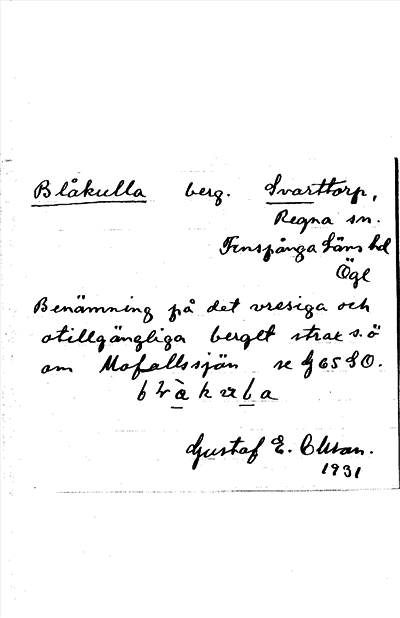 Blåkulla berg. Svarttorp,
Regna sn.
Finspånga läns hd
Ögl
Benämning på det vresiga och
otillgängliga berget strax s.ö
om Mofallssjön se G 65 SO.
Gustaf E. Olsson.
1931